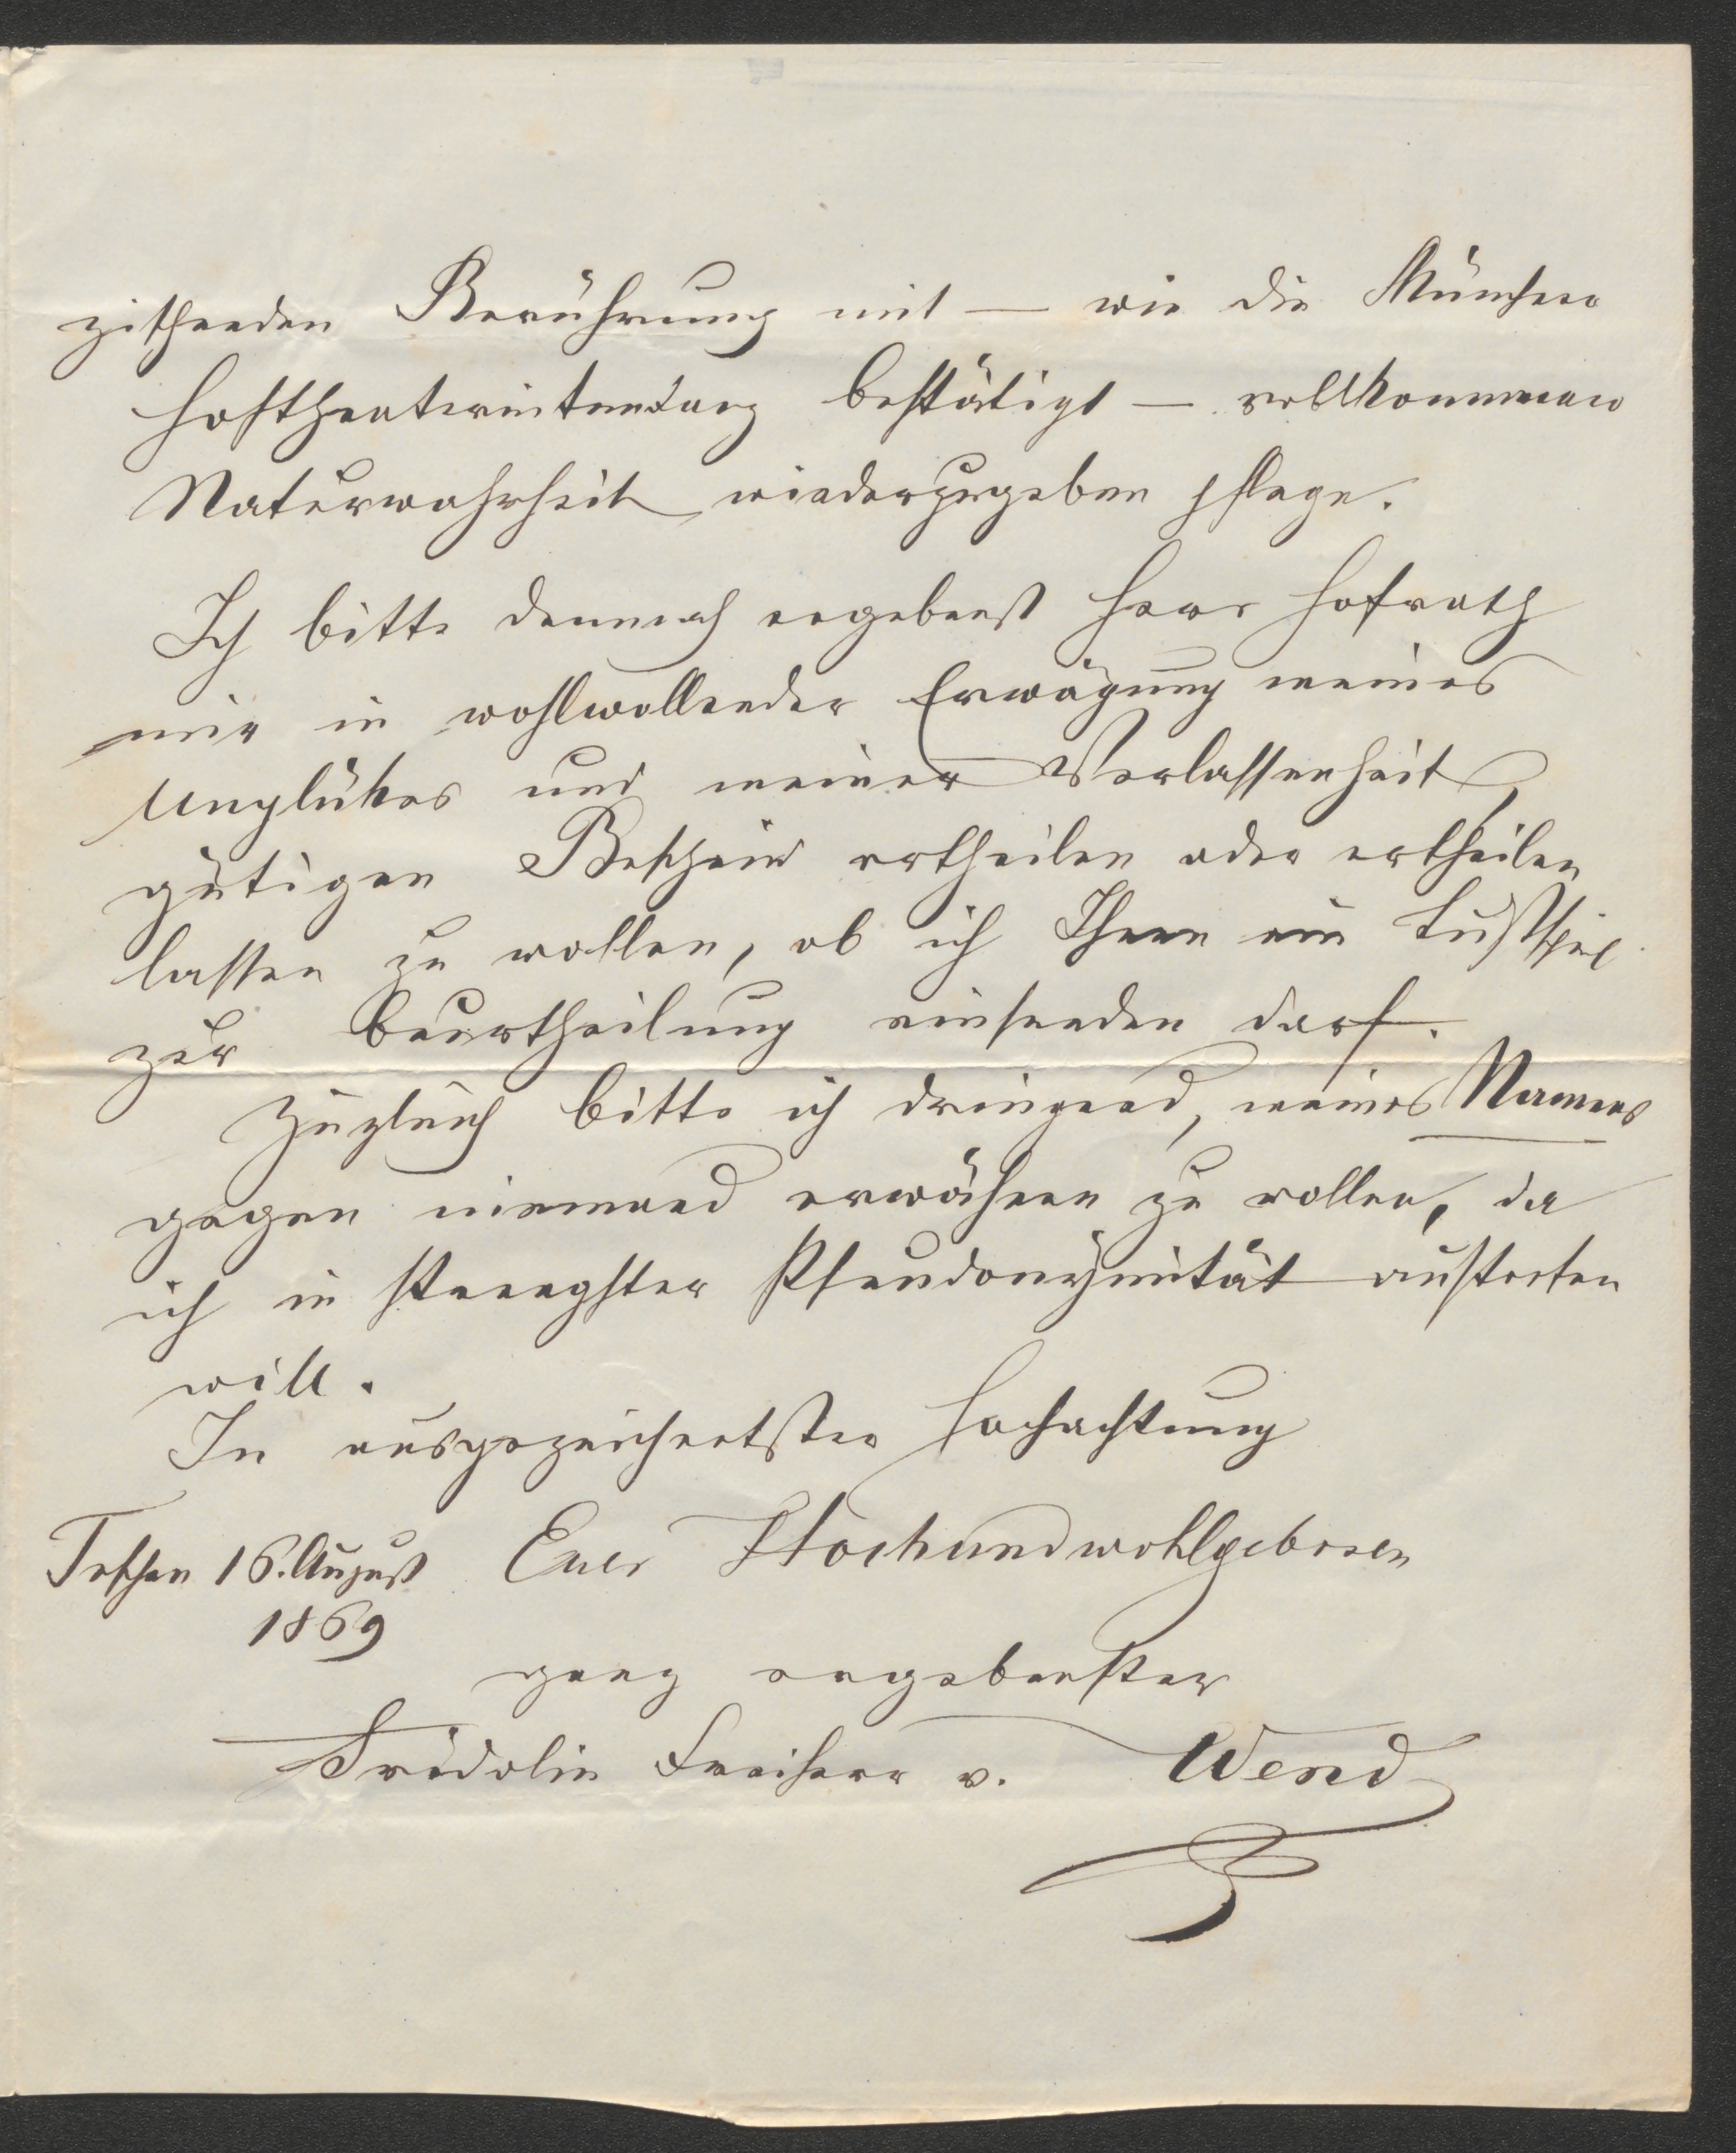 ziehenden Berührung mit — wie die Münchner
Hoftheaterintendanz bestätigt — vollkommener
Naturwahrheit wiederzugeben pflege.
Ich bitte demnach ergebenst Herr Hofrath
mir in wohlwollender Erwägung meines
Unglükes und meiner Verlassenheit,
gütigen Bescheid ertheilen oder ertheilen
lassen zu wollen, ob ich Ihnen ein Lustspiel
zur Beurtheilung einsenden darf.
Zugleich bitte ich dringend, meines Namens
gegen niemand erwähnen zu wollen, da
ich in strengster Pseudonymität auftreten
will.
In ausgezeichnetster Hochachtung
Teschen 16. August Euer Hochundwohlgeboren
1869
ganz ergebenster
Fridolin Freiherr v. Wend